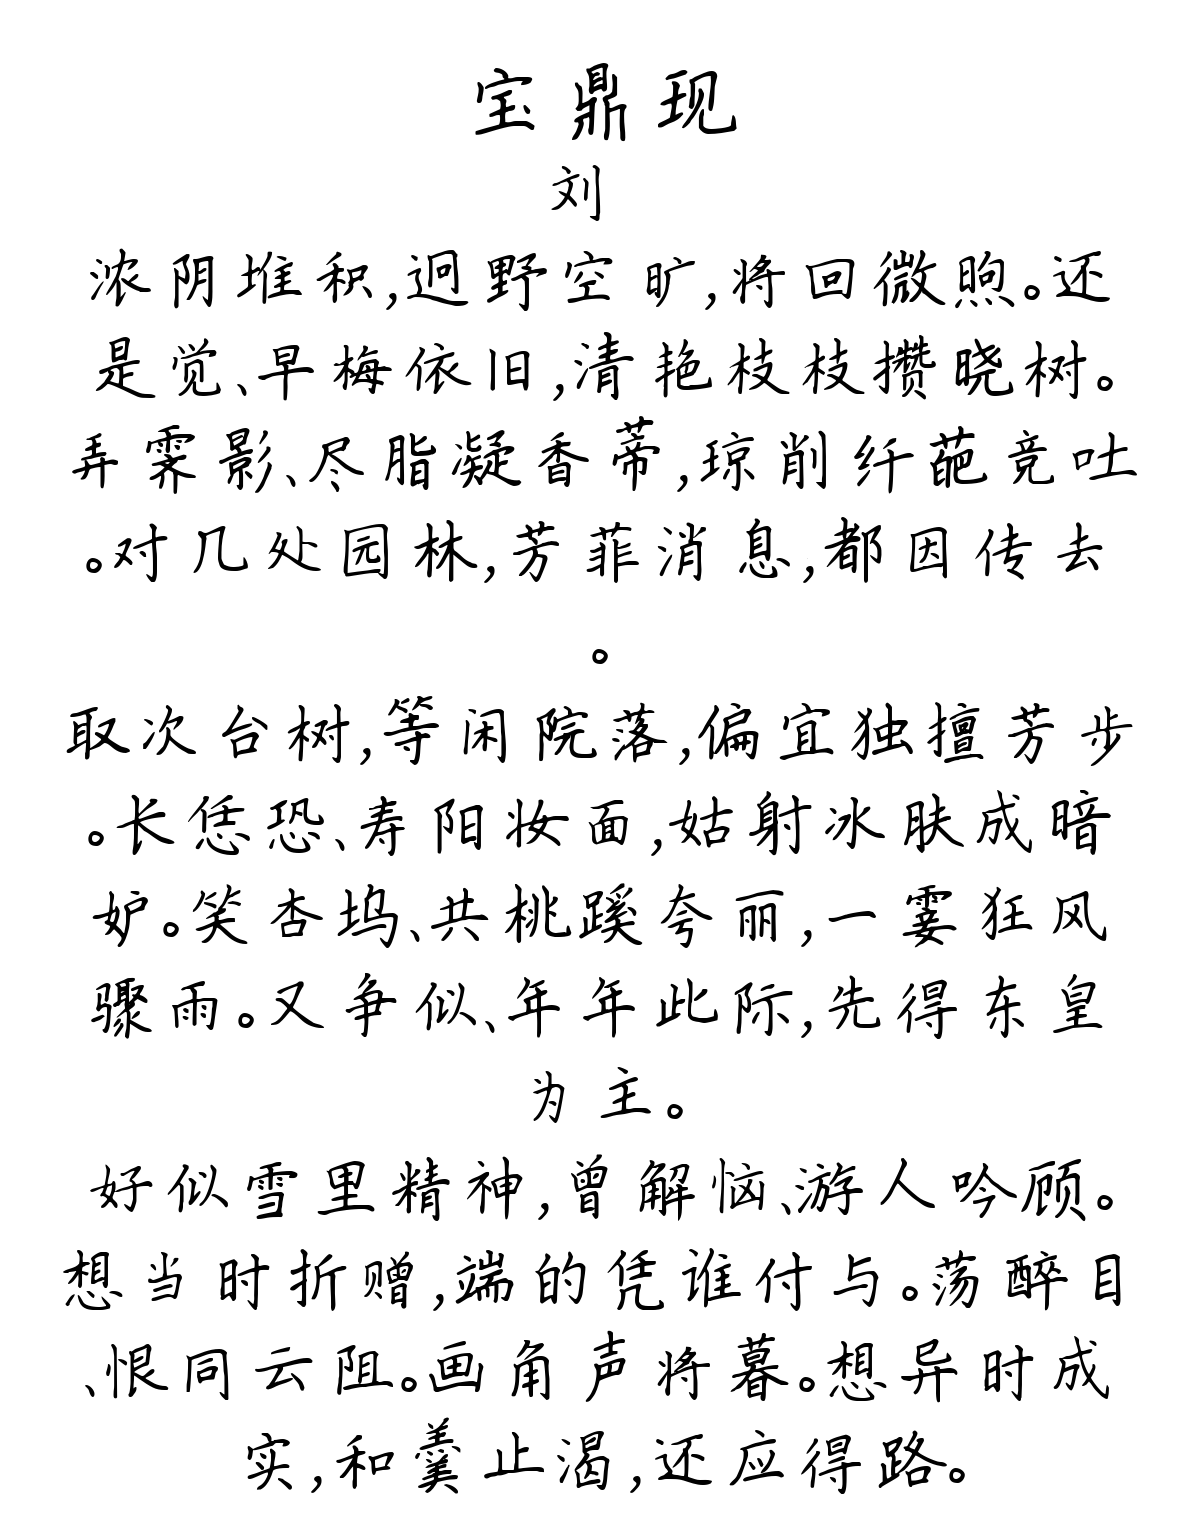 宝鼎现
刘
浓阴堆积,迥野空旷,将回微煦。还
是觉、早梅依旧,清艳枝枝攒晓树。
弄霁影、尽脂凝香蒂,琼削纤葩竞吐
。对几处园林,芳菲消息,都因传去
。
取次台树,等闲院落,偏宜独擅芳步
。长恁恐、寿阳妆面,姑射冰肤成暗
妒。笑杏坞、共桃蹊夸丽,一霎狂风
骤雨。又争似、年年此际,先得东皇
为主。
好似雪里精神,曾解恼、游人吟顾。
想当时折赠,端的凭谁付与。荡醉目
、恨同云阻。画角声将暮。想异时成
实,和羹止渴,还应得路。